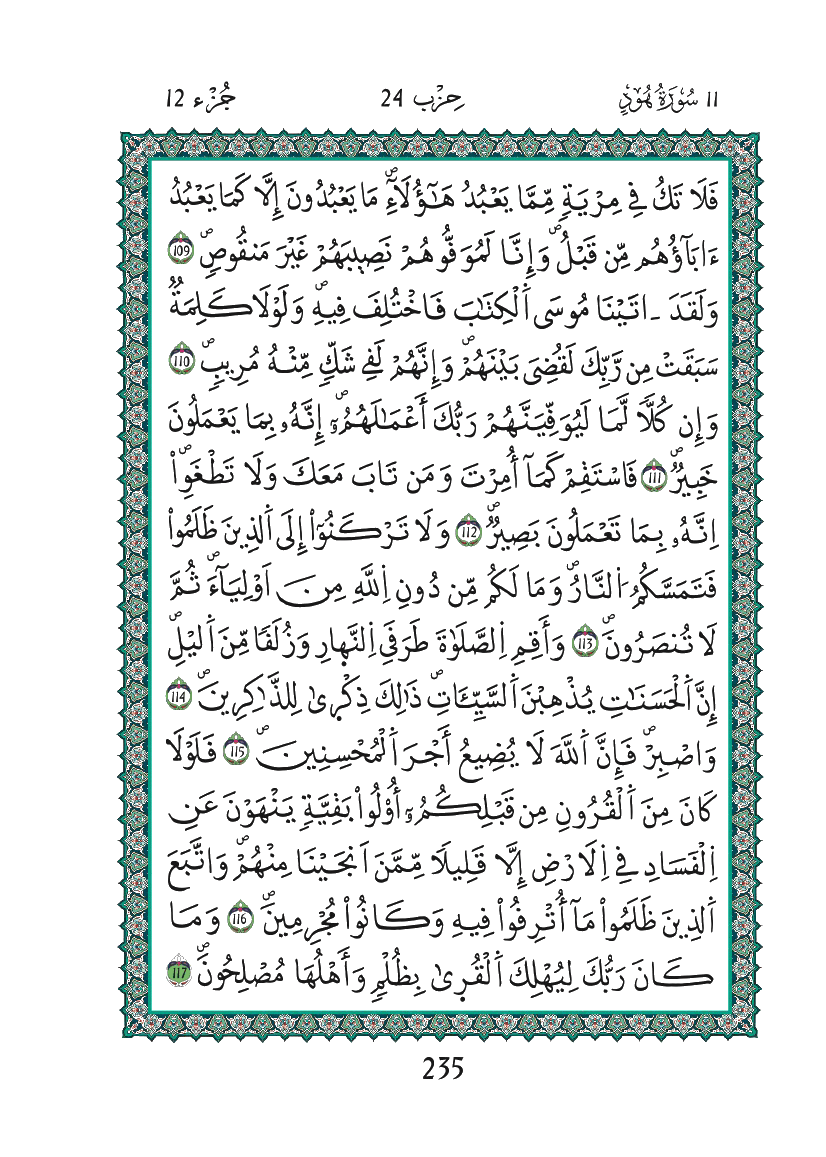 11 سُورَةُ هُودٍ حِزْب 24 جُزْء 12
فَلَا تَكُ فِے مِرْيَةٖ مِّمَّا يَعْبُدُ هَٰٓؤُلَآءِۖ مَا يَعْبُدُونَ إِلَّا كَمَا يَعْبُدُ
ءَابَآؤُهُم مِّن قَبْلُۖ وَإِنَّا لَمُوَفُّوهُمْ نَصِيبَهُمْ غَيْرَ مَنقُوصٖۖ 109
وَلَقَدَ ـ اتَيْنَا مُوسَي اَ۬لْكِتَٰبَ فَاخْتُلِفَ فِيهِۖ وَلَوْلَا كَلِمَةٞ
سَبَقَتْ مِن رَّبِّكَ لَقُضِيَ بَيْنَهُمْۖ وَإِنَّهُمْ لَفِے شَكّٖ مِّنْهُ مُرِيبٖۖ 110
وَإِن كُلّاٗ لَّمَا لَيُوَفِّيَنَّهُمْ رَبُّكَ أَعْمَٰلَهُمُۥٓۖ إِنَّهُۥ بِمَا يَعْمَلُونَ
خَبِيرٞۖ 111 فَاسْتَقِمْ كَمَآ أُمِرْتَ وَمَن تَابَ مَعَكَ وَلَا تَطْغَوِاْۖ
اِنَّهُۥ بِمَا تَعْمَلُونَ بَصِيرٞۖ 112 وَلَا تَرْكَنُوٓاْ إِلَي اَ۬لذِينَ ظَلَمُواْ
فَتَمَسَّكُمُ اُ۬لنَّارُۖ وَمَا لَكُم مِّن دُونِ اِ۬للَّهِ مِنَ اَوْلِيَآءَۖ ثُمَّ
لَا تُنصَرُونَۖ 113 وَأَقِمِ اِ۬لصَّلَوٰةَ طَرَفَيِ اِ۬لنَّهِارِ وَزُلَفاٗ مِّنَ اَ۬ليْلِۖ
إِنَّ اَ۬لْحَسَنَٰتِ يُذْهِبْنَ اَ۬لسَّيِّـَٔاتِۖ ذَٰلِكَ ذِكْرىٰ لِلذَّٰكِرِينَۖ 114
وَاصْبِرْۖ فَإِنَّ اَ۬للَّهَ لَا يُضِيعُ أَجْرَ اَ۬لْمُحْسِنِينَۖ 115 فَلَوْلَا
كَانَ مِنَ اَ۬لْقُرُونِ مِن قَبْلِكُمُۥٓ أُوْلُواْ بَقِيَّةٖ يَنْهَوْنَ عَنِ
اِ۬لْفَسَادِ فِے اِ۬لَارْضِ إِلَّا قَلِيلاٗ مِّمَّنَ اَنجَيْنَا مِنْهُمْۖ وَاتَّبَعَ
اَ۬لذِينَ ظَلَمُواْ مَآ أُتْرِفُواْ فِيهِ وَكَانُواْ مُجْرِمِينَۖ 116 وَمَا
كَانَ رَبُّكَ لِيُهْلِكَ اَ۬لْقُرىٰ بِظُلْمٖ وَأَهْلُهَا مُصْلِحُونَۖ 117
235